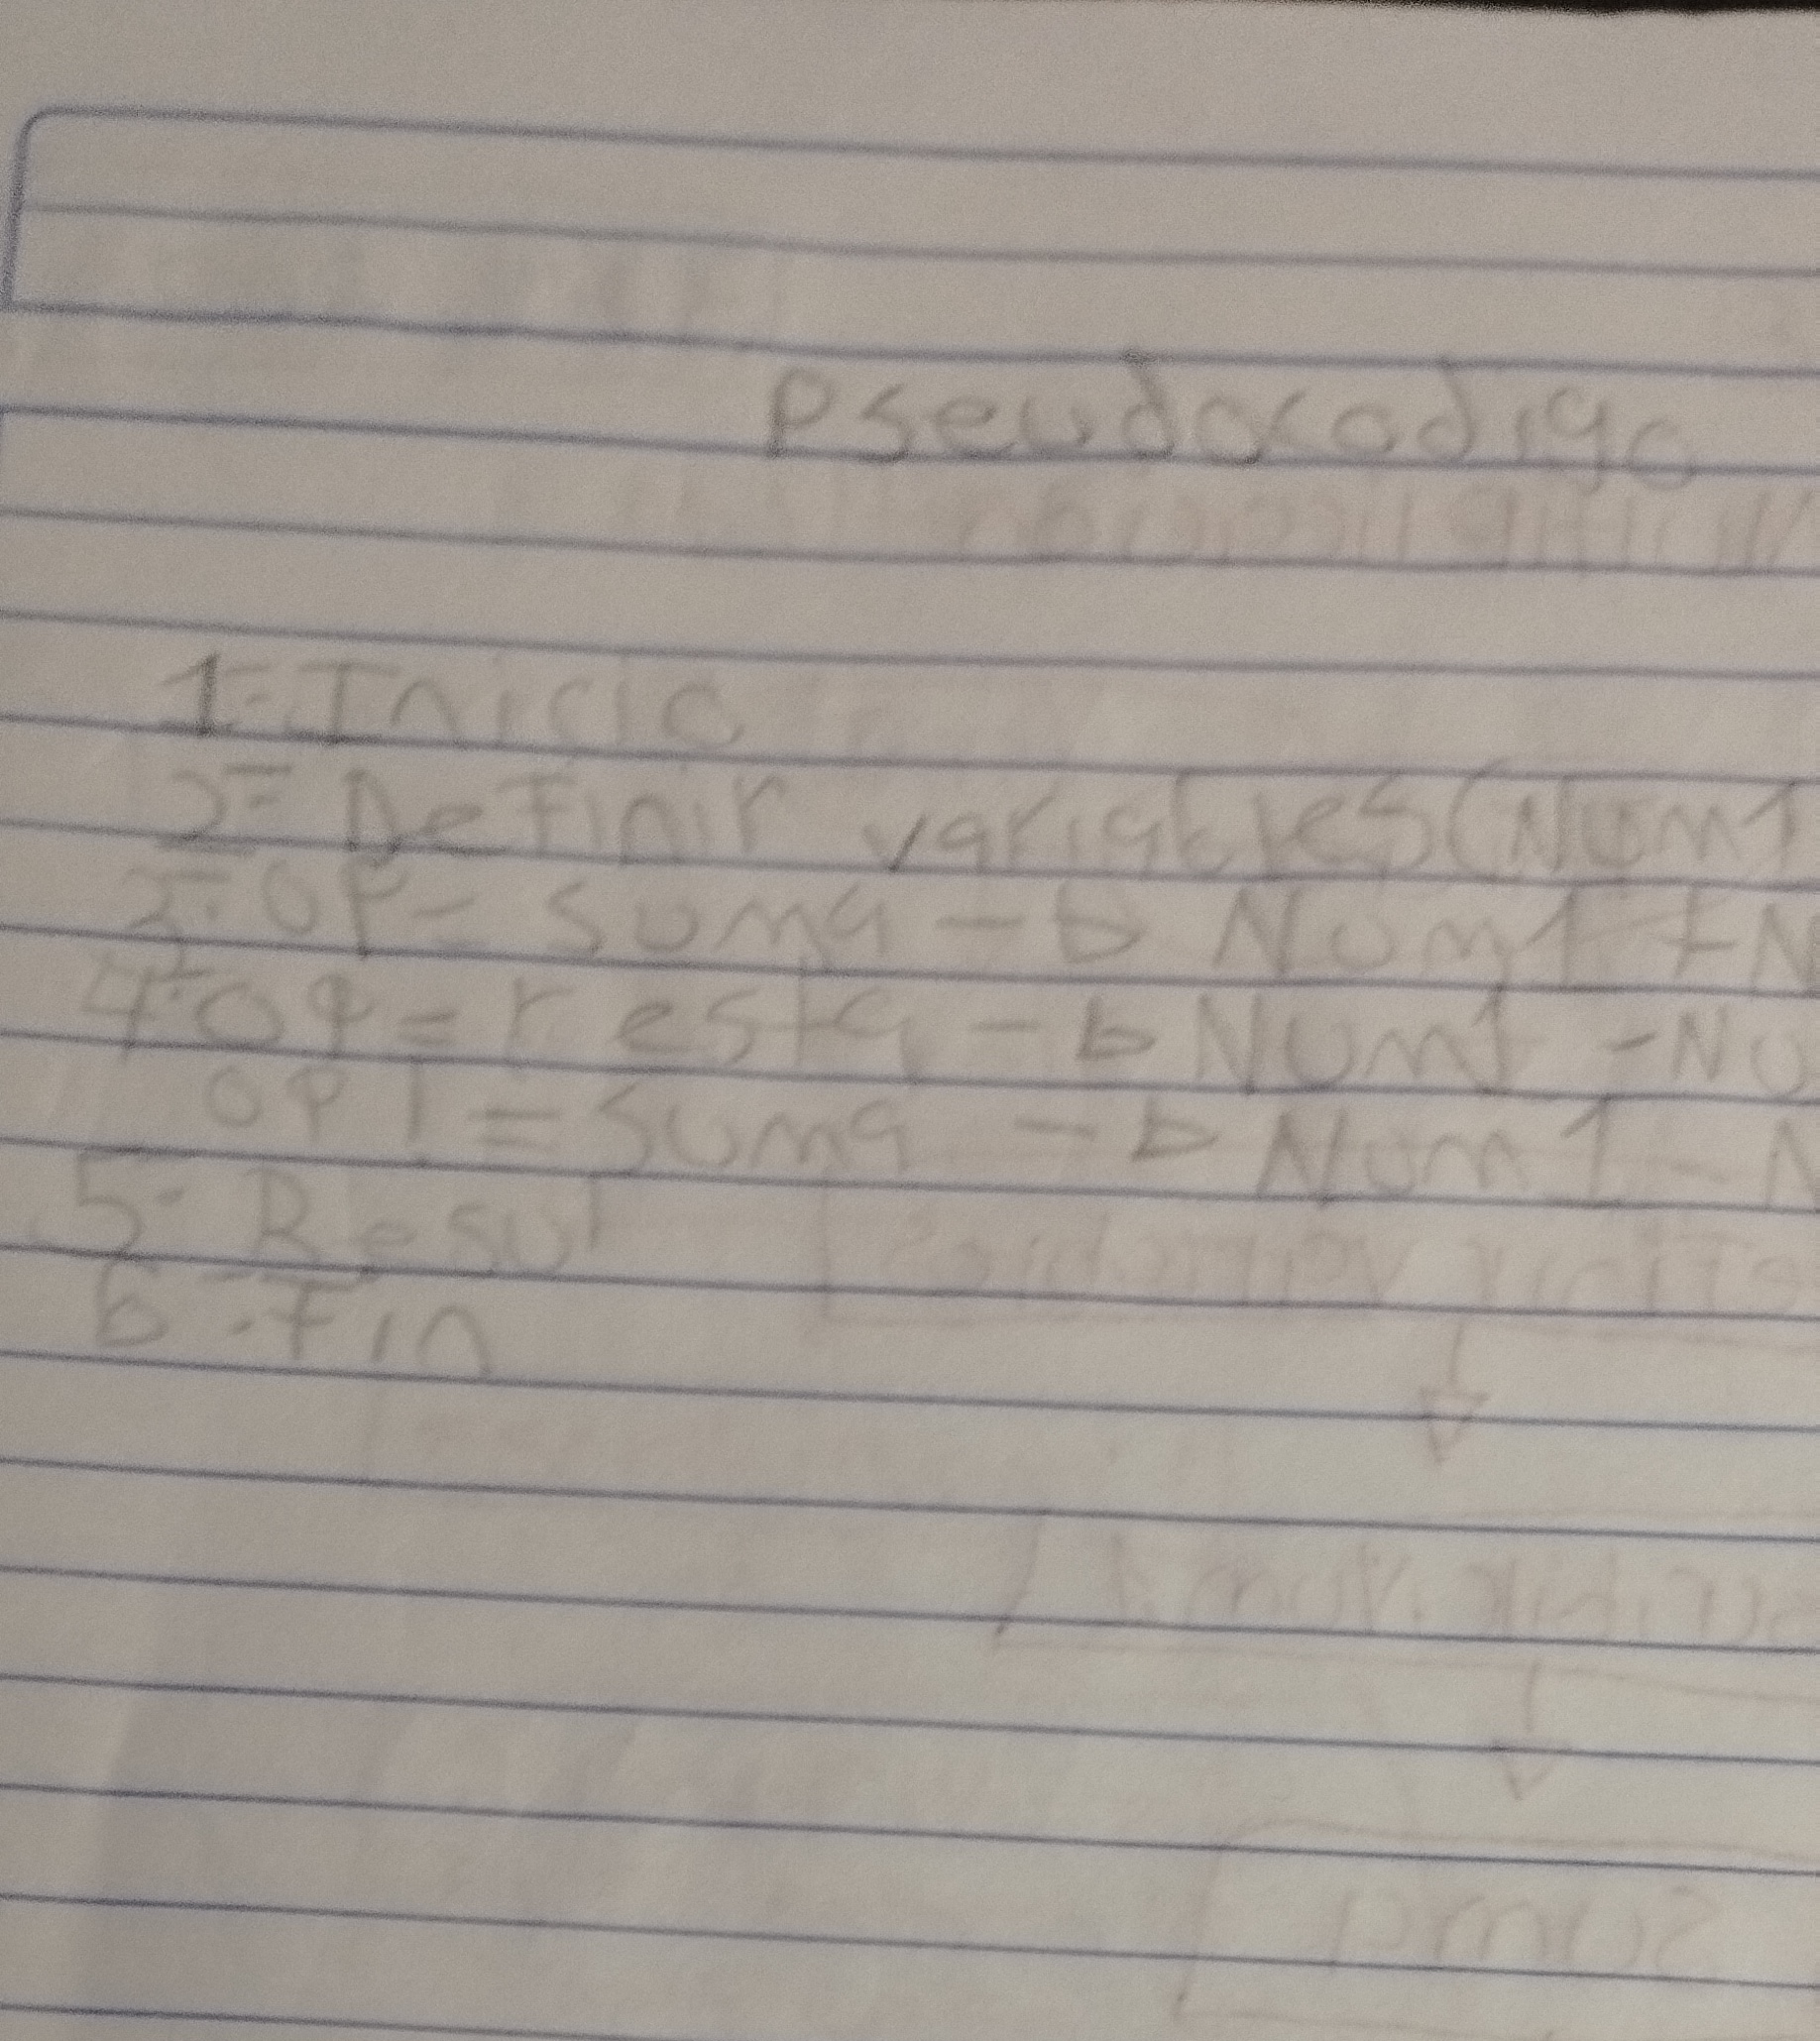 Pseudocodigo
1.- Inicio
2.- Definir variables (Num1
3.- OP = Suma -▷ Num1 + N
4.- OP = resta -▷ Num1 - Nu
OP1 = Suma -▷ Num1 - N
5.- Resul
6.- Fin